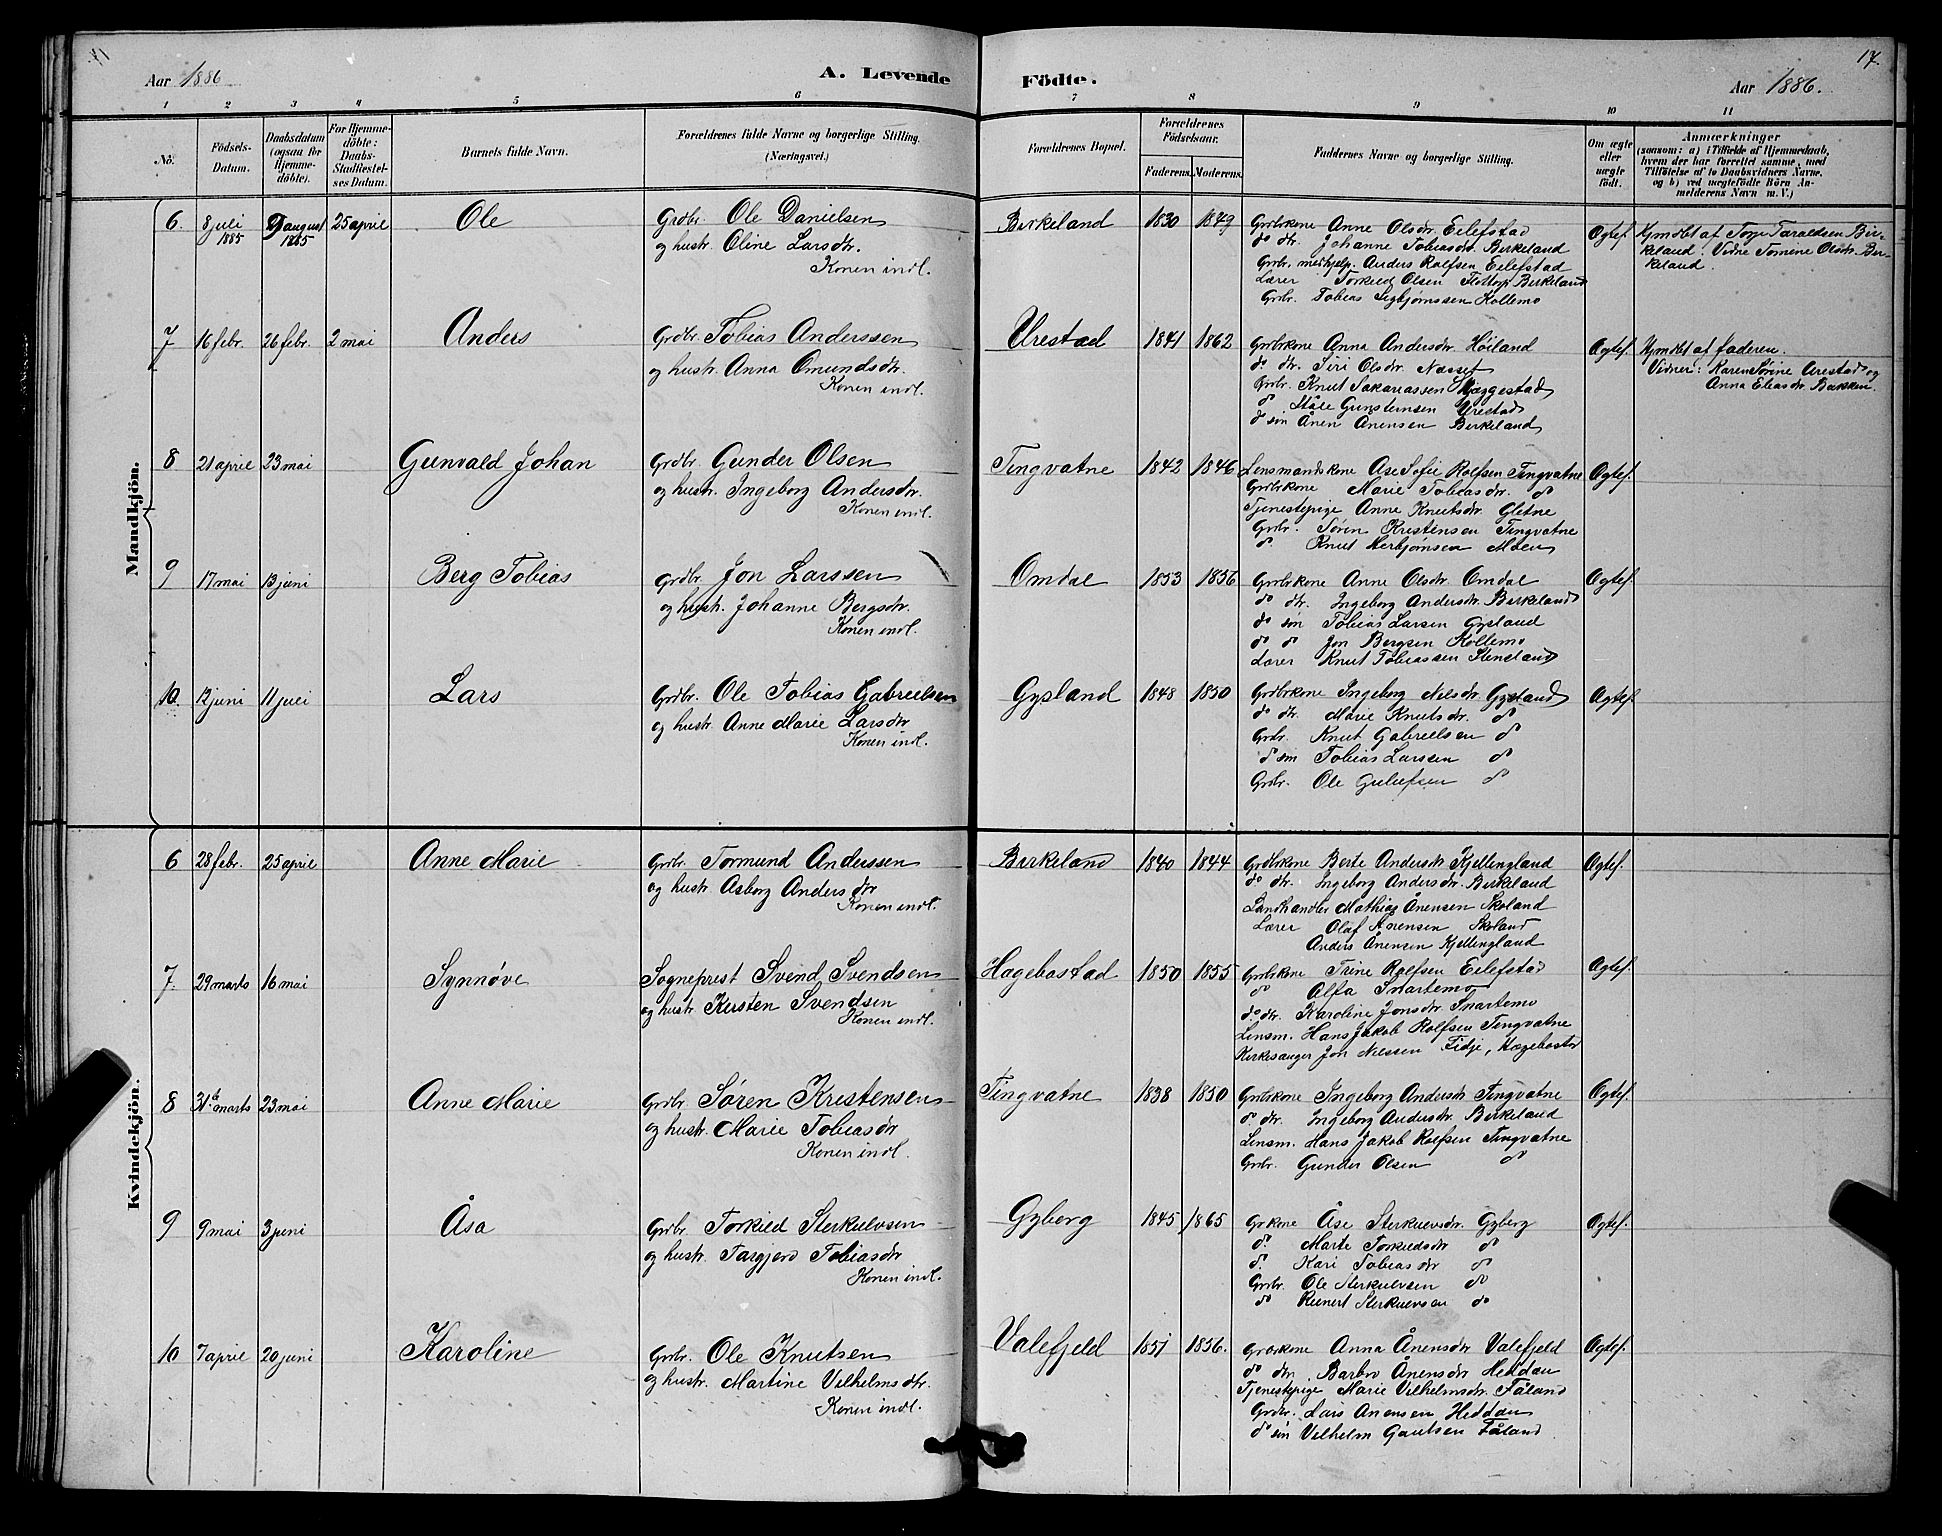 Aar 1886
A. Levende
Födte.
Aar 1886.
17.
1 2 3 4 5 6 7 8 9 10 11
No.
Födsels-
Datum.
Daabsdatum
(ogsaa for
Hjemme-
döbte).
For Hjemme-
döbte:
Daabs-
Stadfæstel-
ses Datum.
Barnets fulde Navn.
Forældrenes fulde Navne og borgerlige Stilling.
(Næringsvei.)
Forældrenes Bopæl.
Forældrenes
Födselsaar.
Faderens. Moderens.
Faddernes Navne og borgerlige Stilling.
Om ægte
eller
uægte
födt.
Anmærkninger
(saasom: a) i Tilfælde af Hjemmedaab,
hvem der har forrettet samme, med
Tilföielse af to Daabsvidners Navne,
og b) ved uægtefödte Börn An-
melderens Navn m. V.)
Mandkjön.
6. 8 juli 1885 9 august 1885 25 april Ole
Grdbr. Ole Danielsen
og hustr. Oline Larsdtr.
Konen indl.
Birkeland 1830 1849
Grdbrkone Anne Olsdtr. Eilefstad
do dtr. Johanne Tobiasdtr. Birkeland
Grbr. medhjelp. Anders Rolfsen Eilefstad
Lærer Torkild Olsen Flottorp Birkeland
Grbr. Tobias Sigbjørnssen Kollemo
Ægtef.
Hjmdbt af Tarald Taraldsen Bir-
keland. Vidne Tomine Olsdtr. Bir-
keland.
7 16 febr. 26 febr. 2 mai Anders
Grdbr. Tobias Anderssen
og hustr. Anna Omundsdtr.
Konen indl.
Urestad 1841 1862
Grdbrkone Anna Andersdtr. Höiland
do dtr. Siri Olsdtr.
Grbr. Knut Sakariassen Skeggestad
do Ståle Gunsteinsen Urestad
do sön Ånen Ånensen Birkeland
Ægtef.
Hjmdbt af faderen.
Vidner: Karen Sörine Urestad og
Anna Eliasdtr. Bakken.
8 21 april 23 mai Gunvald Johan
Grdbr. Gunder Olsen
og hustr. Ingeborg Andersdtr.
Konen indl.
Tingvatne 1842 1846
Lensmandskone Åse Sofie Rolfsen Tingvatne
Grdbrkone Marie Tobiasdtr. do
Tjenestepige Anne Knutsdtr. Gletne
Grbr. Sören Kristensen Tingvatne
do Knut Herbjørnsen Moen
Ægtef.
9 17 mai 13 juni Berg Tobias
Grdbr. Jon Larssen
og hustr. Johanne Bergsdtr.
Konen indl.
Omdal 1853 1856
Grdbrkone Anne Olsdtr. Omdal
do dtr. Ingeborg Andersdtr. Birkeland
do sön Tobias Larsen Gysland
do do Jon Bergsen Kollemo
Lærer Knut Tobiassen Stensland
Ægtef.
10. 12 juni 11 juli Lars
Grdbr. Ole Tobias Gabrielsen
og hustr. Anne Marie Larsdtr
Konen indl.
Gysland 1848 1850
Grdbrkone Ingeborg Nilsdtr. Gysland
do dtr. Marie Knutsdtr. do
Grbr. Knut Gabrielsen do
do sön Tobias Larssen do
Grdbr. Ole Gulufsen do
Ægtef.
Kvindekjön.
6 28 febr. 25 april Anne Marie
Grdbr. Tormund Anderssen
og hustr. Asborg Andersdtr
Konen indl.
Birkeland 1840 1844
Grdbrkone Berte Andersdtr Kjellingland
do dtr. Ingeborg Andersdtr. Birkeland
Landhandler Mathias Ånensen Skoland
Lærer Olaf Ånensen Skoland
Anders Ånensen Kjellingland
Ægtef.
7. 29 marts 16 mai Synnöve
Sogneprest Svend Svendsen
og hustr. Kirsten Svendsen
Konen indl.
Hægebostad 1850 1855
Grdbrkone Trine Rolfsen Eilefstad
do Alfa Snartemo
do dtr. Karoline Jonsdtr. Snartemo
Lensm. Hans Jakob Rolfsen Tingvatne
Kirkesanger Jon Nilssen Fidje, Hægebostad
Ægtef.
8 31te marts 23 mai Anne Marie
Grdbr. Søren Kristensen
og hustr. Marie Tobiasdtr
Konen indl.
Tingvatne 1838 1850
Grdbrkone Ingeborg Andersdtr Tingvatne
do dtr. Ingeborg Andersdtr. Birkeland
Lensm. Hans Jakob Rolfsen Tingvatne
Grbr. Gunder Olsen do
Ægtef.
9 9 mai 3 juni Åsa
Grdbr. Torkild Sterkulvsen
og hustr. Targjerd Tobiasdtr
Konen indl.
Gyberg 1845 1865
Grkone Åse Sterkulvsdtr. Gyberg
do. Marte Torkildsdtr do
do. Kari Tobiasdtr do
Grdbr. Ole Sterkulvsen do
do Reinert Sterkulvsen do
Ægtef.
10 7 april 20 juni Karoline
Grbr. Ole Knutsen
og hustr. Martine Vilhelmsdtr.
Konen indl.
Valefjeld 1851 1856.
Grdbrkone Anna Ånensdtr Valefjeld
do dtr. Barbro Ånensdtr Heddan
Tjenestepige Marie Vilhelmsdtr. Fåland
Grdbr. Lars Ånensen Heddan
do sön Vilhelm Gautsen Fåland
Ægtef.